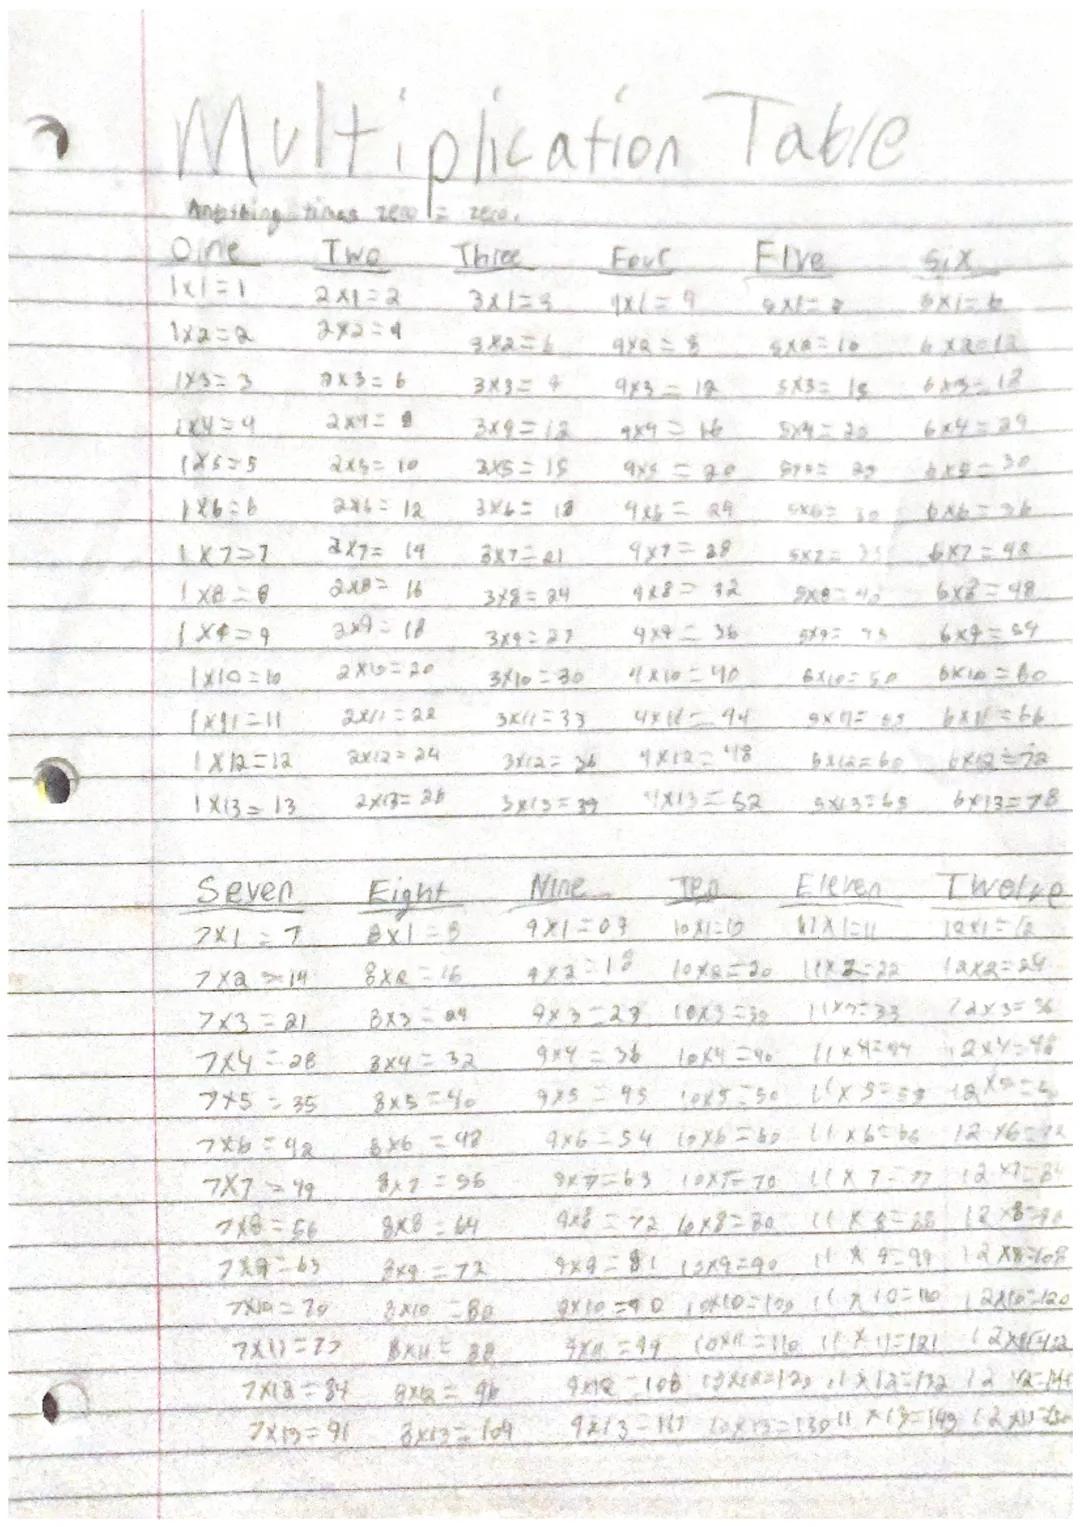 Multiplication Table
Anything times zero = zero.
One Two Three Four Five Six
1x1=1 2x1=2 3x1=3 4x1=4 5x1=5 6x1=6
1x2=2 2x2=4 3x2=6 4x2=8 5x2=10 6x2=12
1x3=3 2x3=6 3x3=9 4x3=12 5x3=15 6x3=18
1x4=4 2x4=8 3x4=12 4x4=16 5x4=20 6x4=24
1x5=5 2x5=10 3x5=15 4x5=20 5x5=25 6x5=30
1x6=6 2x6=12 3x6=18 4x6=24 5x6=30 6x6=36
1x7=7 2x7=14 3x7=21 4x7=28 5x7=35 6x7=42
1x8=8 2x8=16 3x8=24 4x8=32 5x8=40 6x8=48
1x9=9 2x9=18 3x9=27 4x9=36 5x9=45 6x9=54
1x10=10 2x10=20 3x10=30 4x10=40 5x10=50 6x10=60
1x11=11 2x11=22 3x11=33 4x11=44 5x11=55 6x11=66
1x12=12 2x12=24 3x12=36 4x12=48 5x12=60 6x12=72
1x13=13 2x13=26 3x13=39 4x13=52 5x13=65 6x13=78
Seven Eight Nine Ten Eleven Twelve
7x1=7 8x1=8 9x1=09 10x1=10 11x1=11 12x1=12
7x2=14 8x2=16 9x2=18 10x2=20 11x2=22 12x2=24
7x3=21 8x3=24 9x3=27 10x3=30 11x3=33 12x3=36
7x4=28 8x4=32 9x4=36 10x4=40 11x4=44 12x4=48
7x5=35 8x5=40 9x5=45 10x5=50 11x5=55
7x6=42 8x6=48 9x6=54 10x6=60 11x6=66 12x6=72
7x7=49 8x7=56 9x7=63 10x7=70 11x7=77 12x7=84
7x8=56 8x8=64 9x8=72 10x8=80 11x8=88 12x8=96
7x9=63 8x9=72 9x9=81 10x9=90 11x9=99
7x10=70 8x10=80 9x10=90 10x10=100 11x10=110 12x10=120
7x11=77 8x11=88 9x11=99 10x11=110 11x11=121
7x12=84 8x12=96 9x12=108 10x12=120 11x12=132
7x13=91 8x13=104 9x13=117 10x13=130 11x13=143